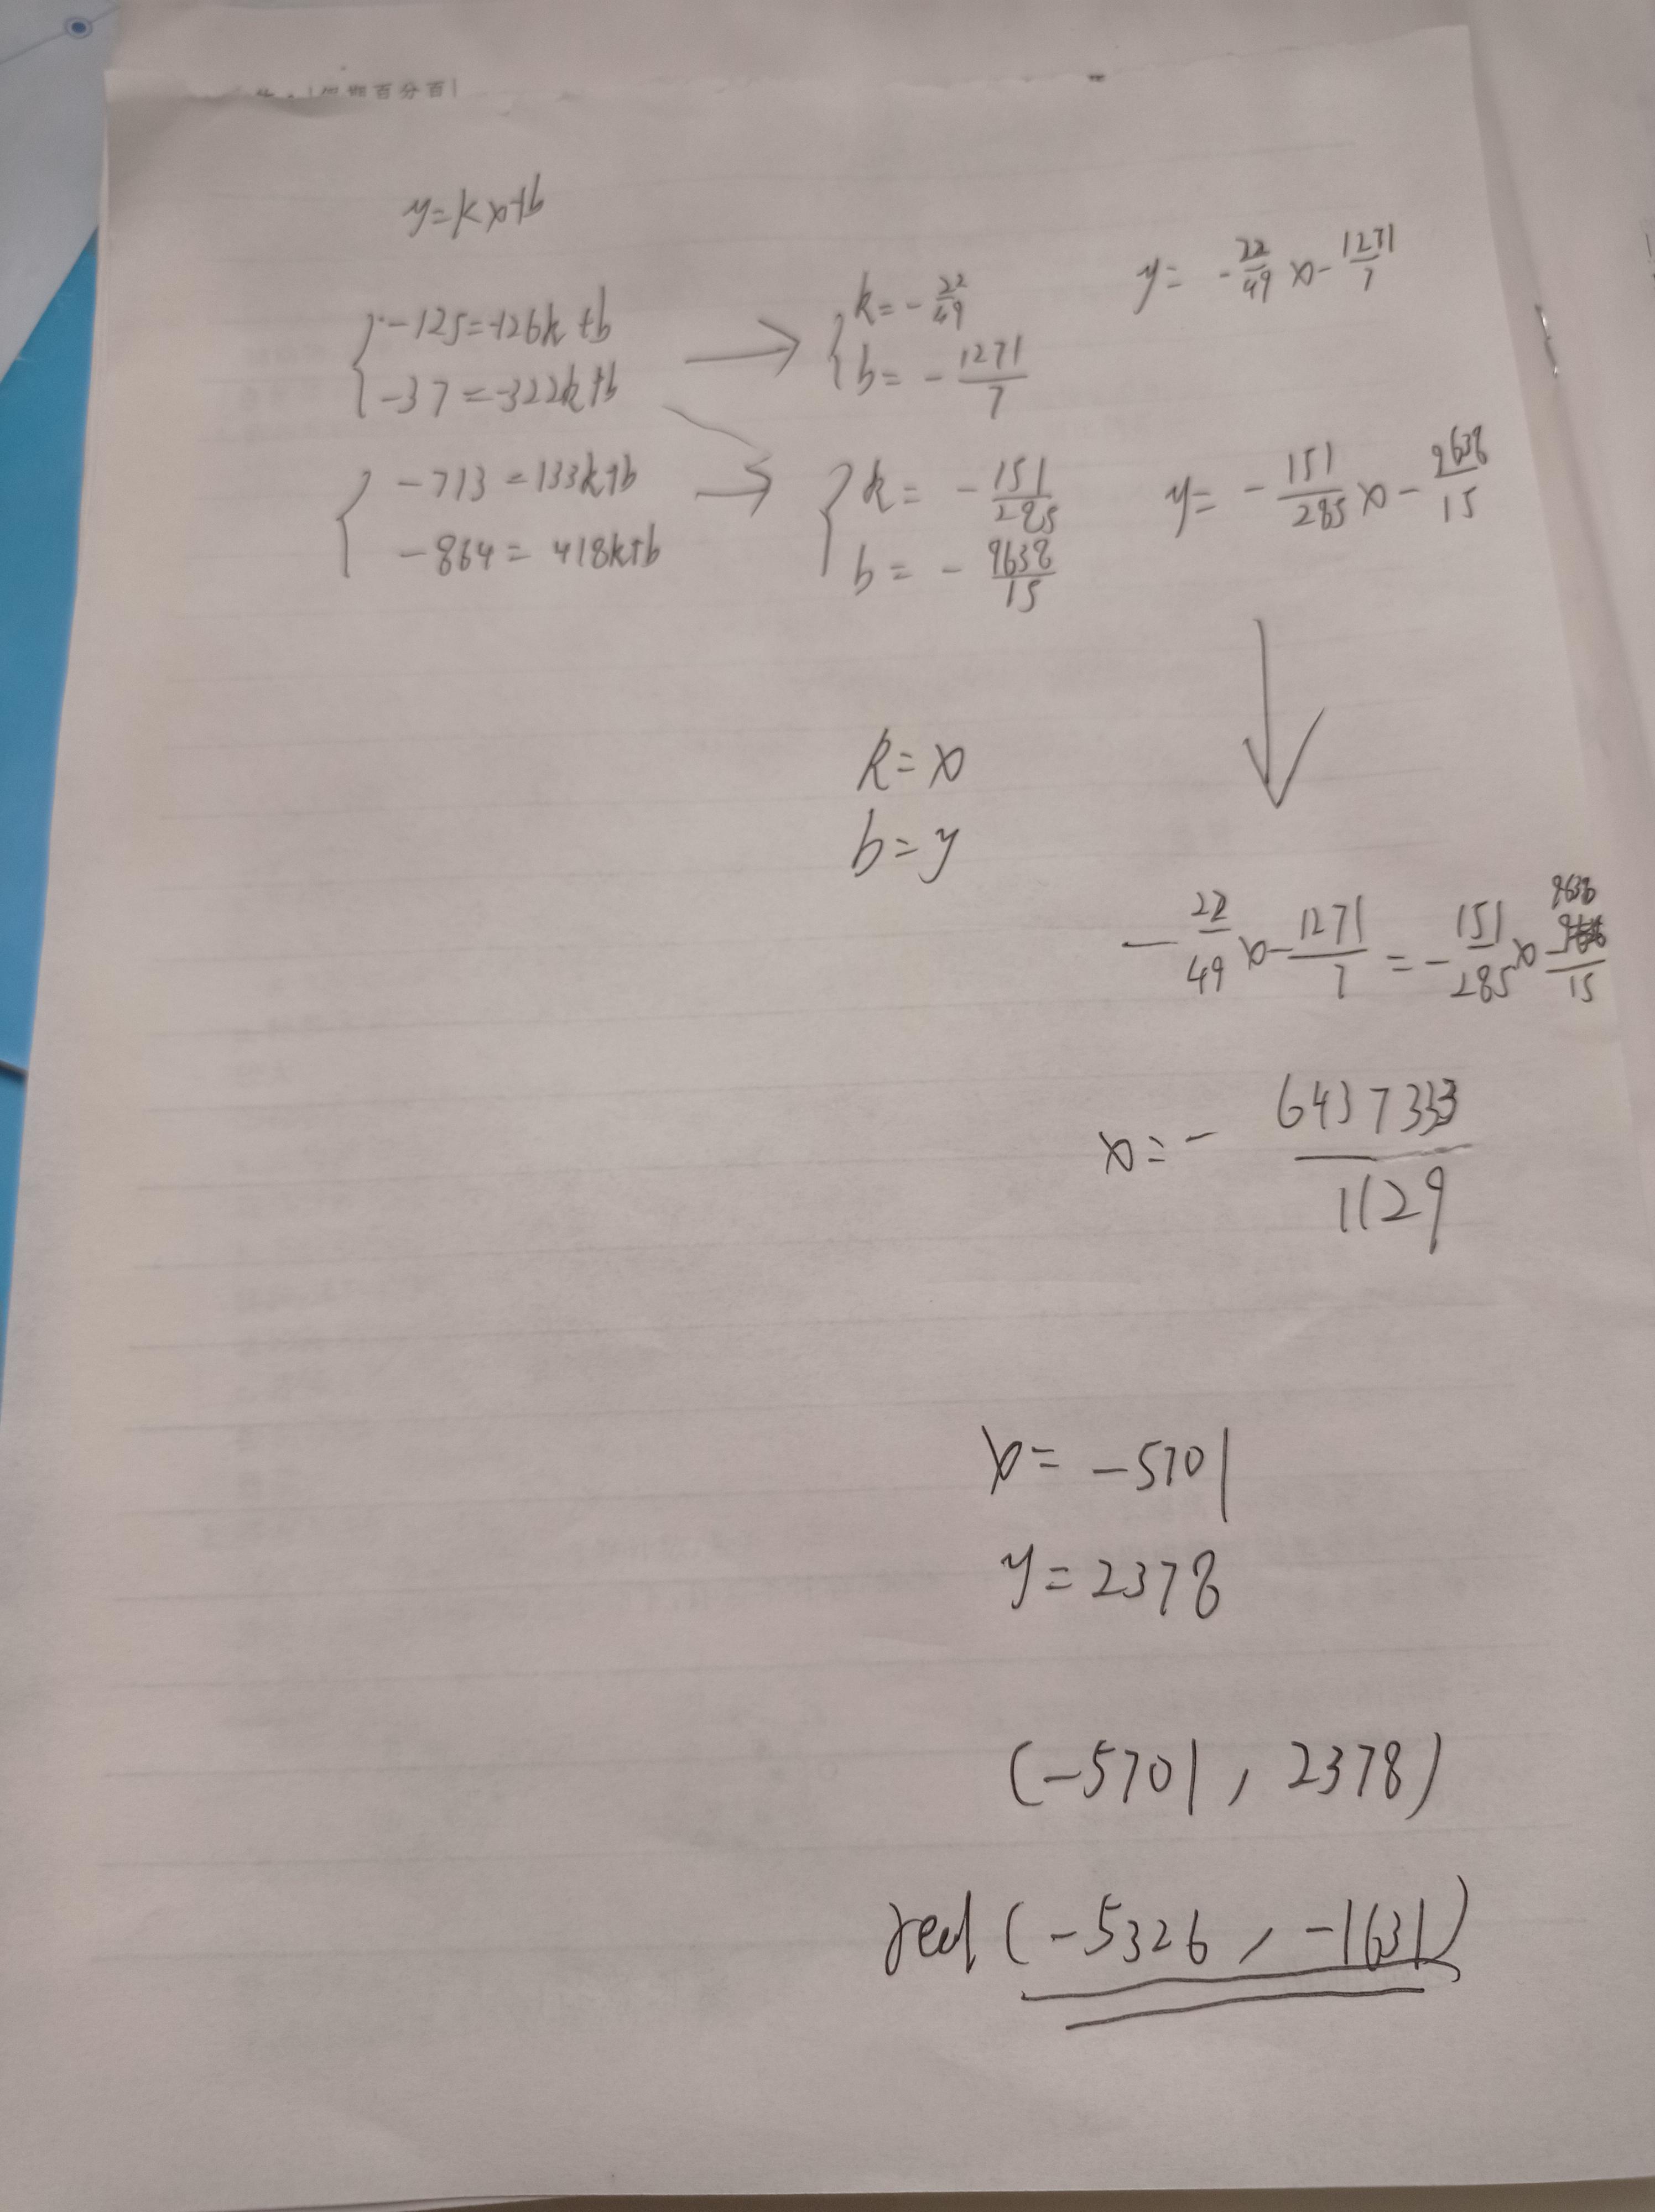 百分百
y=kx+b
-125=-126k+b
-37=-322k+b
k=-22/49
b=-1271/7
y=-22/49x-1271/7
-713=133k+b
-864=418k+b
k=-151/285
b=-9638/15
y=-151/285x-9638/15
k=x
b=y
-22/49x-1271/7=-151/285x 9638/15
x=-6437333/1129
x=-5701
y=2378
(-5701, 2378)
real (-5326, -1631)